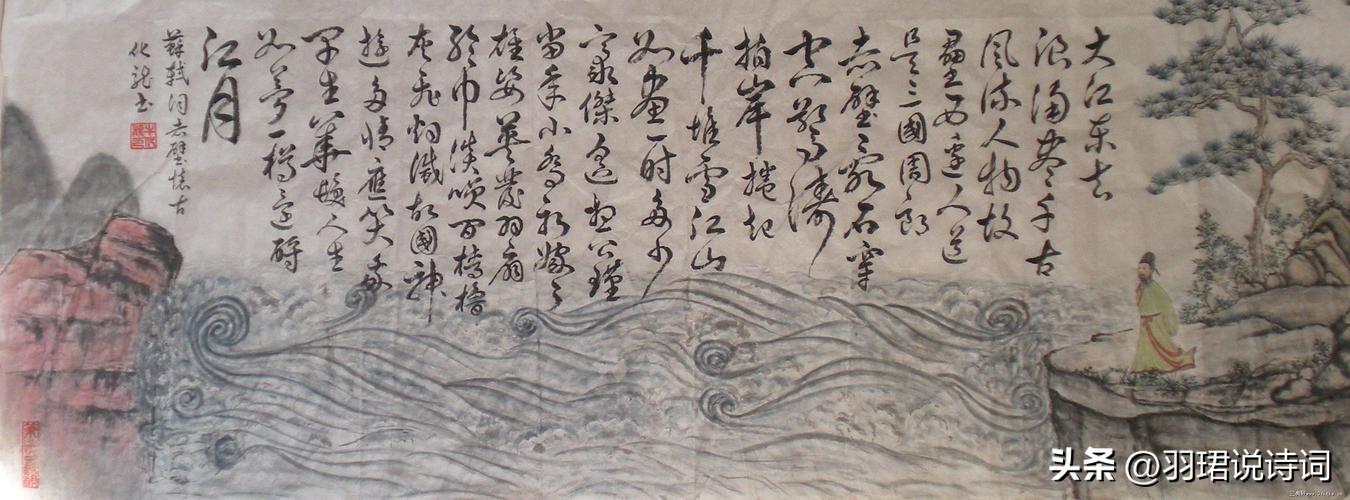 大江东去
浪淘尽千古
风流人物故
垒西边人道
是三國周郎
赤壁乱石穿
空驚濤
拍岸捲起
千堆雪江山
如畫一时多少
豪傑遥想公瑾
当年小乔初嫁了
雄姿英發羽扇
纶巾谈笑间檣櫓
灰飞烟滅故國神
遊多情應笑我
早生華髮人生
如夢一樽还酹
江月
蘇軾词赤壁懷古
化龍书
头条 @羽珺说诗词